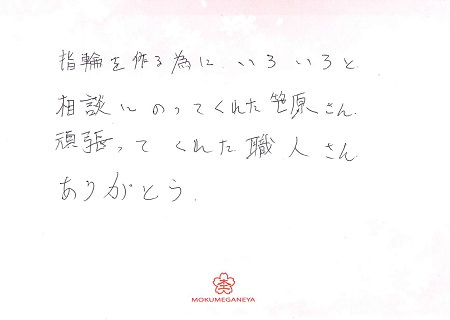 指輪を作る為に いろいろと
相談にのってくれた笹原さん.
頑張ってくれた職人さん
ありがとう.
MOKUMEGANEYA